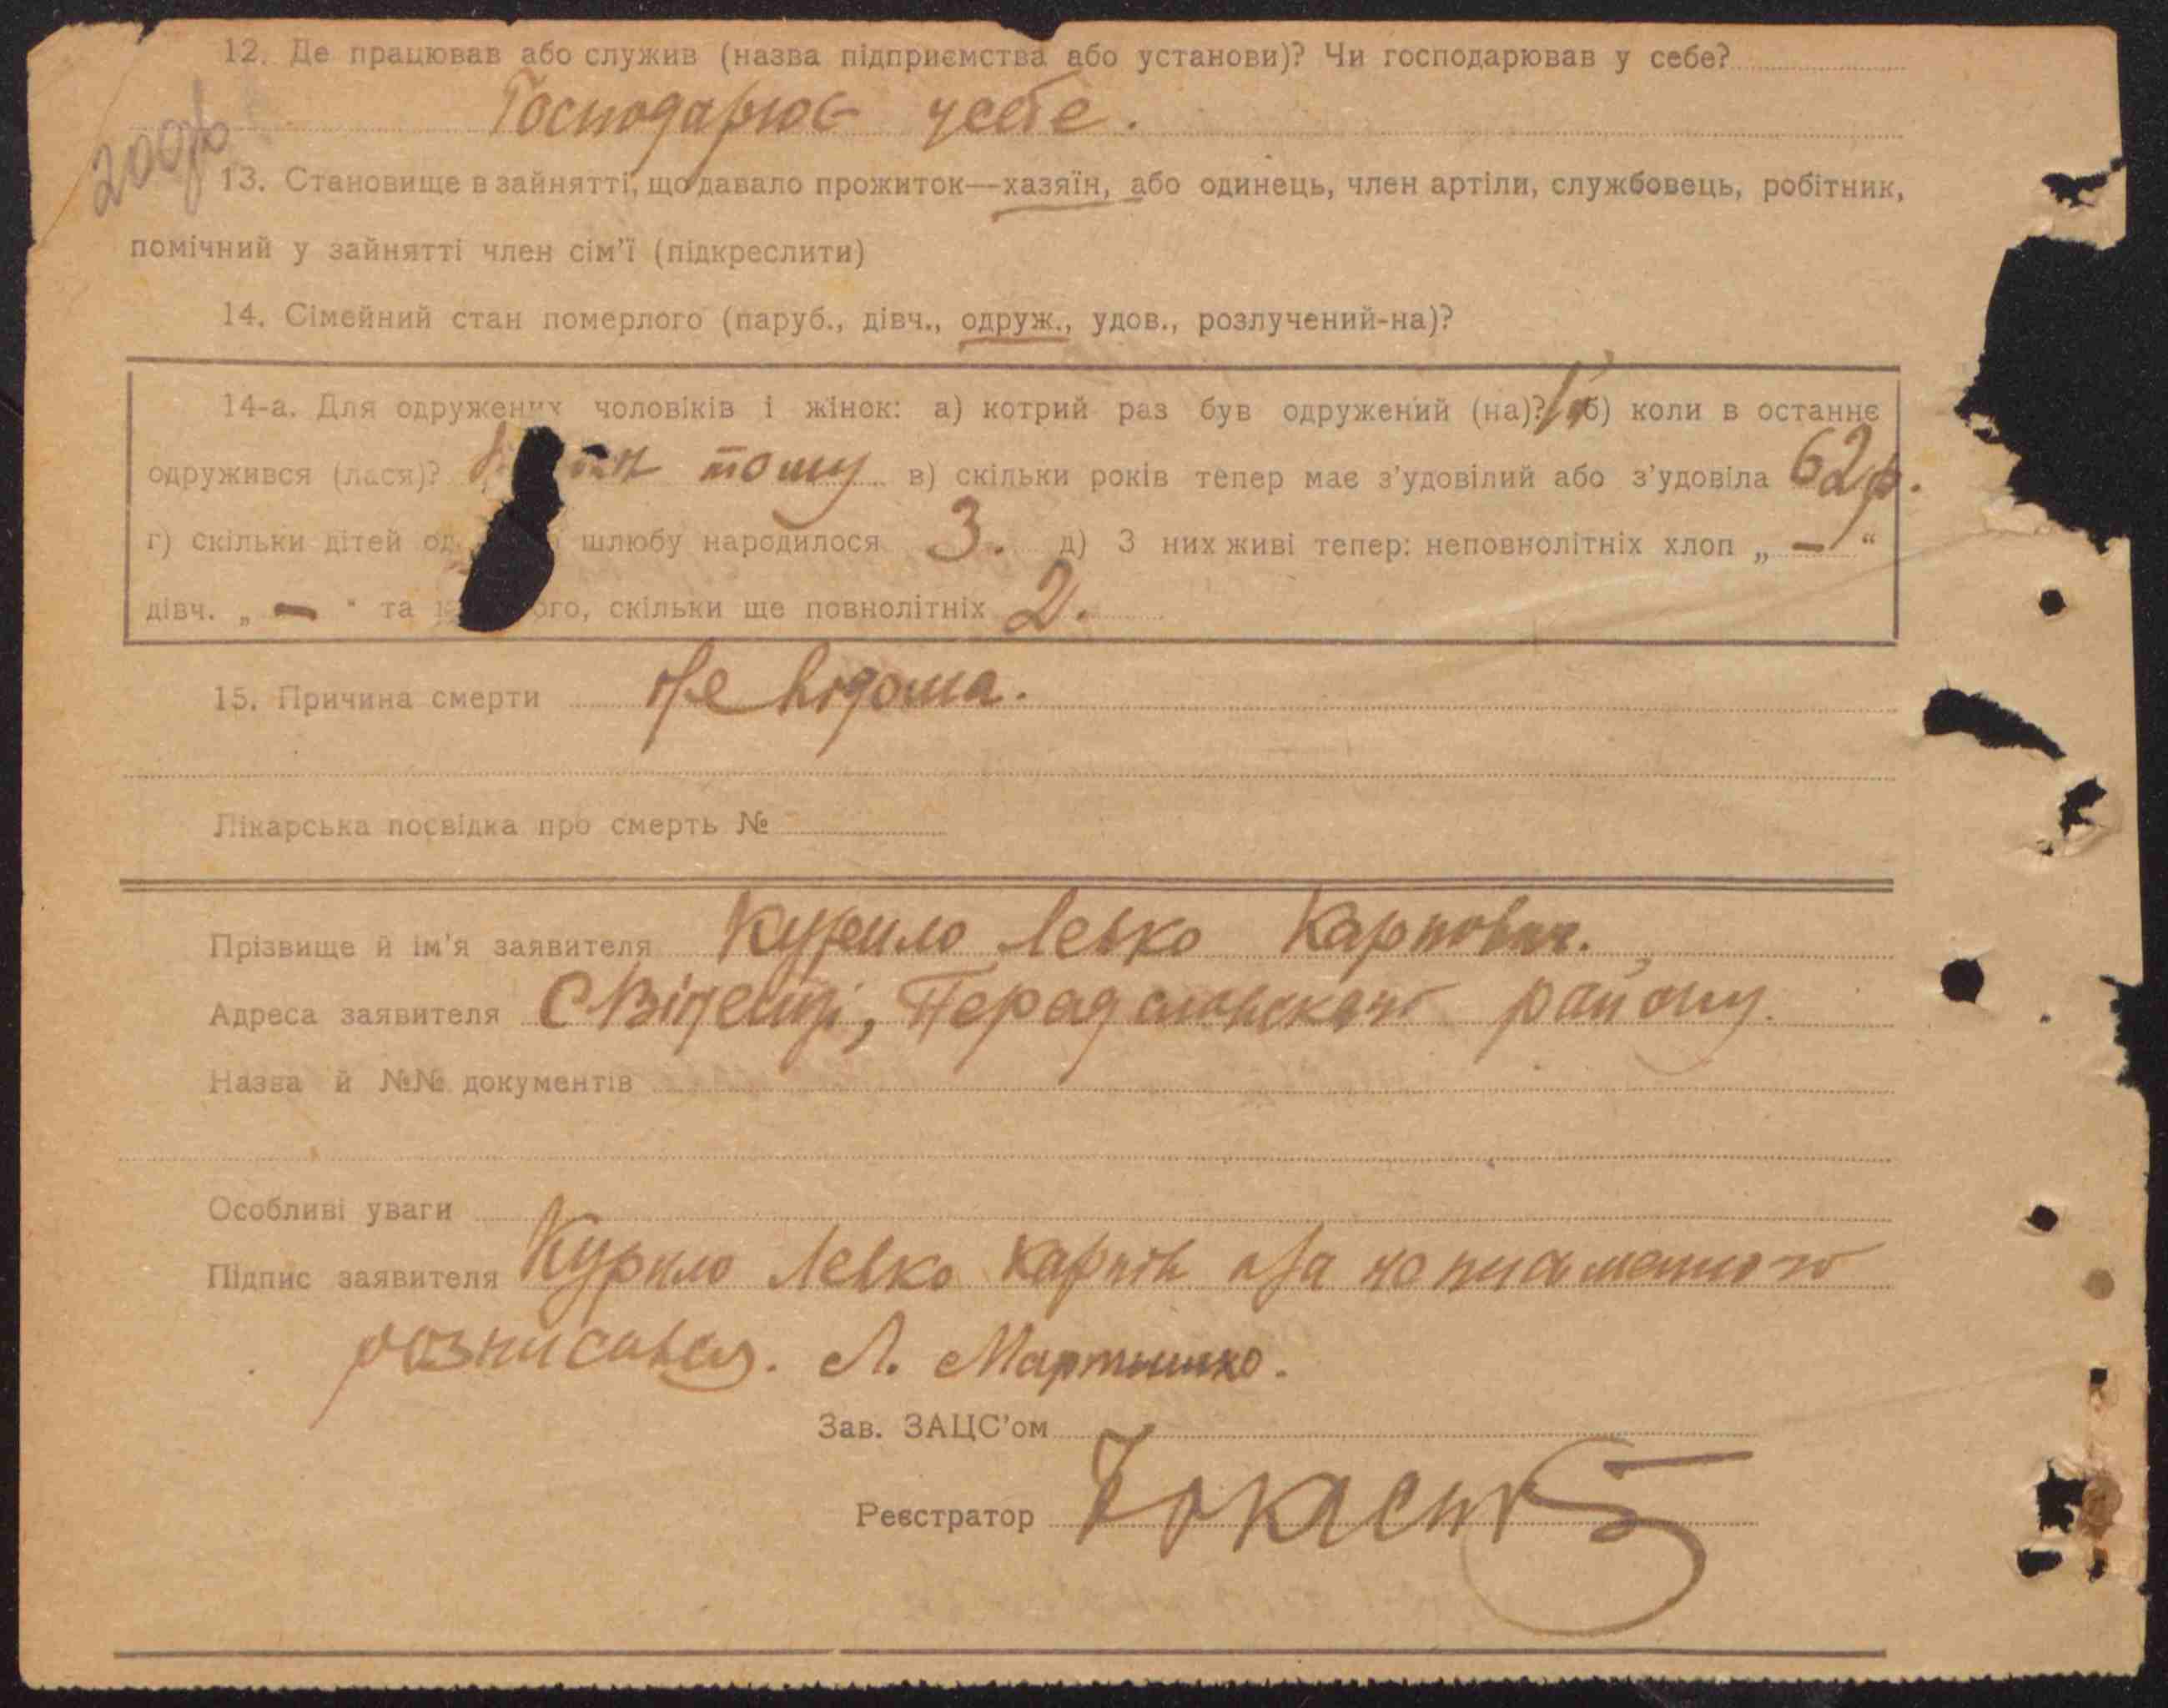 12. Де працював або служив (назва підприємства або установи)? Чи господарював у себе?
Господарює усебе.
13. Становище в зайнятті, що давало прожиток—хазяїн, або одинець, член артіли, службовець, робітник,
помічний у зайнятті член сім'ї (підкреслити)
14. Сімейний стан померлого (паруб., дівч., одруж., удов., розлучений-на)?
14-а. Для одружених чоловіків і жінок: а) котрий раз був одружений (на)? б) коли в останнє
одружився (лася)? тому в) скільки років тепер має з'удовілий або з'удовіла 62 р.
г) скільки дітей од шлюбу народилося 3. д) З них живі тепер: неповнолітніх хлоп „ — “
дівч. „ — “ та ого, скільки ще повнолітніх 2.
15. Причина смерти Не відома.
Лікарська посвідка про смерть №
Прізвище й ім'я заявителя Курило Левко Карпович.
Адреса заявителя району.
Назва й №№ документів
Особливі уваги
Підпис заявителя Курило Левко Карпів а за неписаменого
розписався. Л. Мартиненко.
Зав. ЗАЦС'ом
Реєстратор